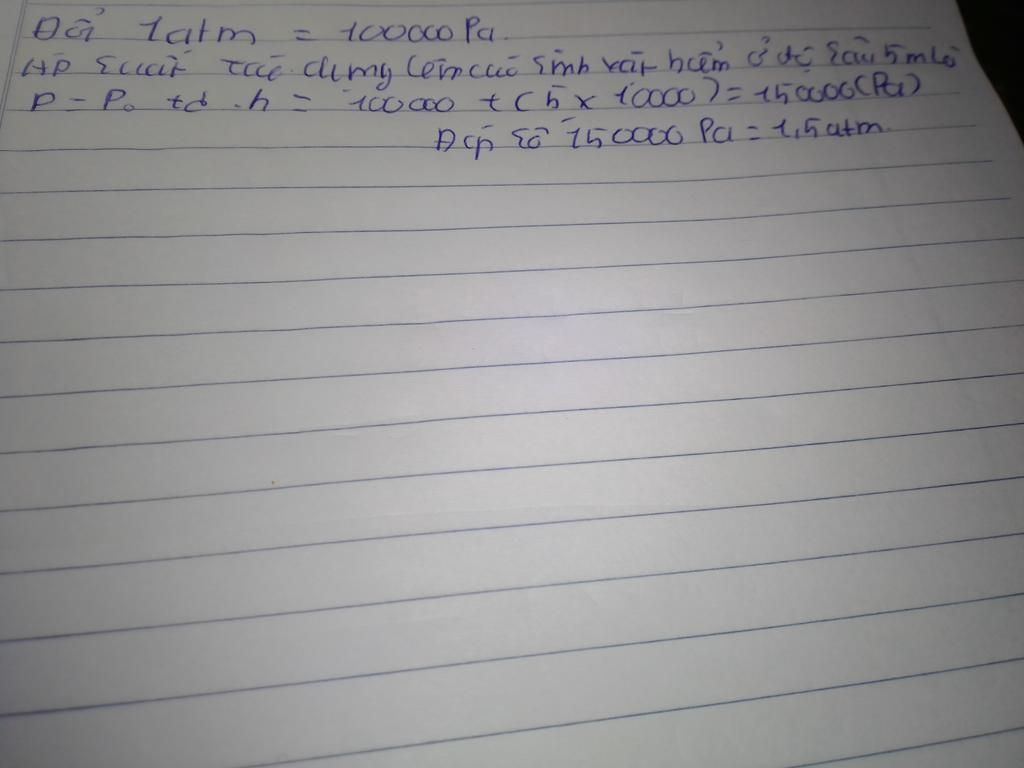 Đổi 1atm = 100000 Pa.
Áp suất tác dụng lên các sinh vật biển ở độ sâu 5m là
P = P₀ + d . h = 100000 + (5 x 10000) = 150000 (Pa)
Đáp số 150000 Pa = 1,5atm.